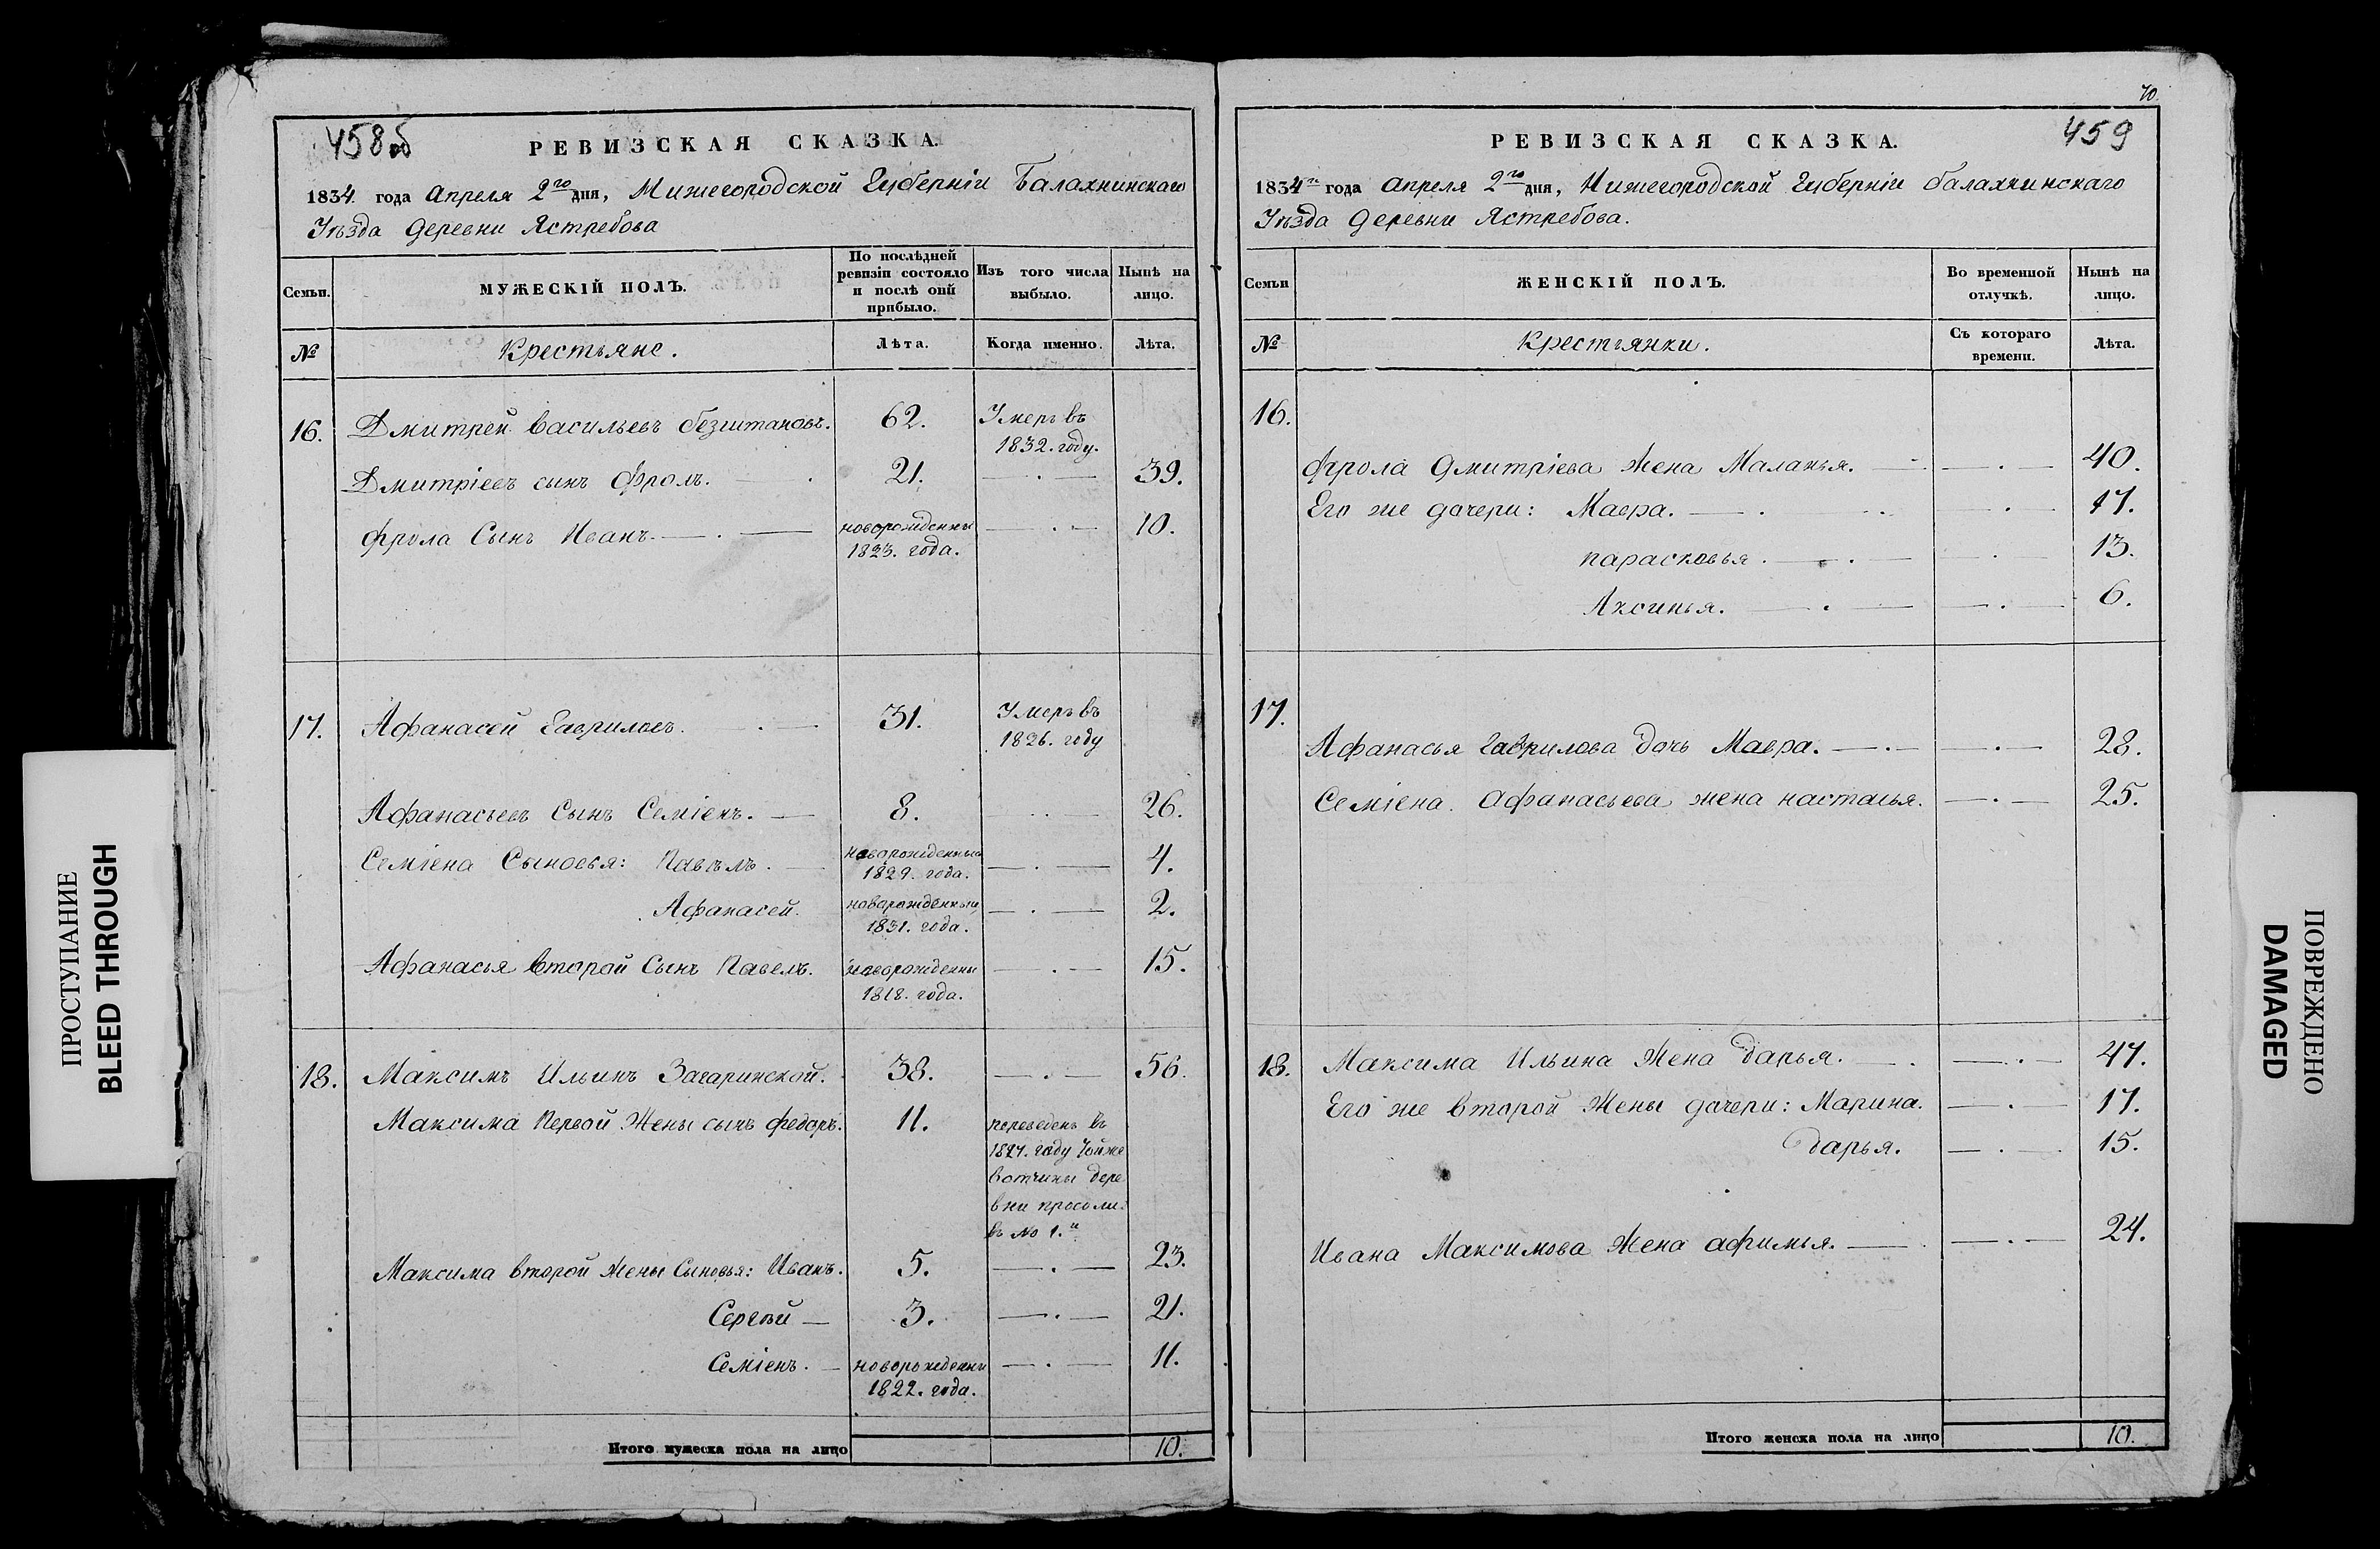 458об
РЕВИЗСКАЯ СКАЗКА.
1834. года Апреля 2го дня, Нижегородской Губерніи Балахнинскаго
Уѣзда деревни Ястребова
Семьи.
МУЖЕСКІЙ ПОЛЪ.
По послѣдней ревизіи состояло и послѣ оній прибыло.
Изъ того числа выбыло.
Нынѣ на лицо.
№
Крестьяне.
Лѣта.
Когда именно.
Лѣта.
16. Дмитрей Васильевъ безштановъ. 62. Умеръ въ 1832. году.
Дмитріевъ сынъ Фролъ. 21. 39.
Фрола Сынъ Иванъ. новорожденны 1823. года. 10.
17. Афанасей Гавриловъ. 31. Умеръ въ 1826. году
Афанасьевъ Сынъ Семіенъ. 8. 26.
Семіена Сыновья: Павелъ. новорожденные 1829. года. 4.
Афанасей. новорожденны 1831. года. 2.
Афанасья второй Сынъ Павелъ. новорожденны 1818. года. 15.
18. Максимъ Ильинъ Загаринской. 38. 56.
Максима Первой Жены сынъ федоръ. 11. переведенъ въ
1827. году тойже
вотчины дере
вни
въ № 1.
Максима второй жены Сыновья: Иванъ. 5. 23.
Сергѣй 3. 21.
Семіенъ. новорожденны 1822. года. 11.
Итого мужеска пола на лицо 10.
70.
459
РЕВИЗСКАЯ СКАЗКА.
1834 года Апреля 2го дня, Нижегородской Губерніи балахнинскаго
Уѣзда деревни Ястребова.
Семьи
ЖЕНСКІЙ ПОЛЪ.
Во временной отлучкѣ.
Нынѣ на лицо.
№
Крестьянки.
Съ котораго времени.
Лѣта.
16.
Фрола Дмитріева Жена Маланья. 40.
Его же дочери: Мавра. 17.
парасковья. 13.
Аксинья. 6.
17.
Афанасья Гаврилова дочь Мавра. 28.
Семіена Афанасьева жена настасья. 25.
18. Максима Ильина Жена дарья. 47.
Его же второй Жены дочери: Марина. 17.
дарья. 15.
Ивана Максимова Жена афимья. 24.
Итого женска пола на лицо 10.
ПРОСТУПАНИЕ
BLEED THROUGH
ПОВРЕЖДЕНО
DAMAGED